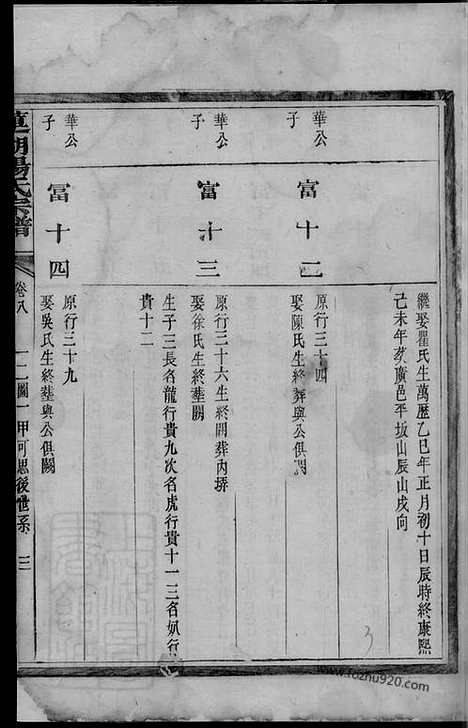 繼娶瞿氏生萬歷乙巳年正月初十日辰時終康熙
己未年葬廣邑平坂山辰山戌向
華公
子
富十二
原行三十四
娶陳氏生終葬與公俱闕
華公
子
富十三
原行三十六生終闕葬內塝
娶徐氏生終塟闕
生子三長名龍行貴九次名虎行貴十一三名㚢行
貴十二
華公
子
冨十四
原行三十九
娶吳氏生終塟與公俱闕
湯氏宗譜
卷八
一二圖一甲可思後世系
三
3
www.fozhu920.com